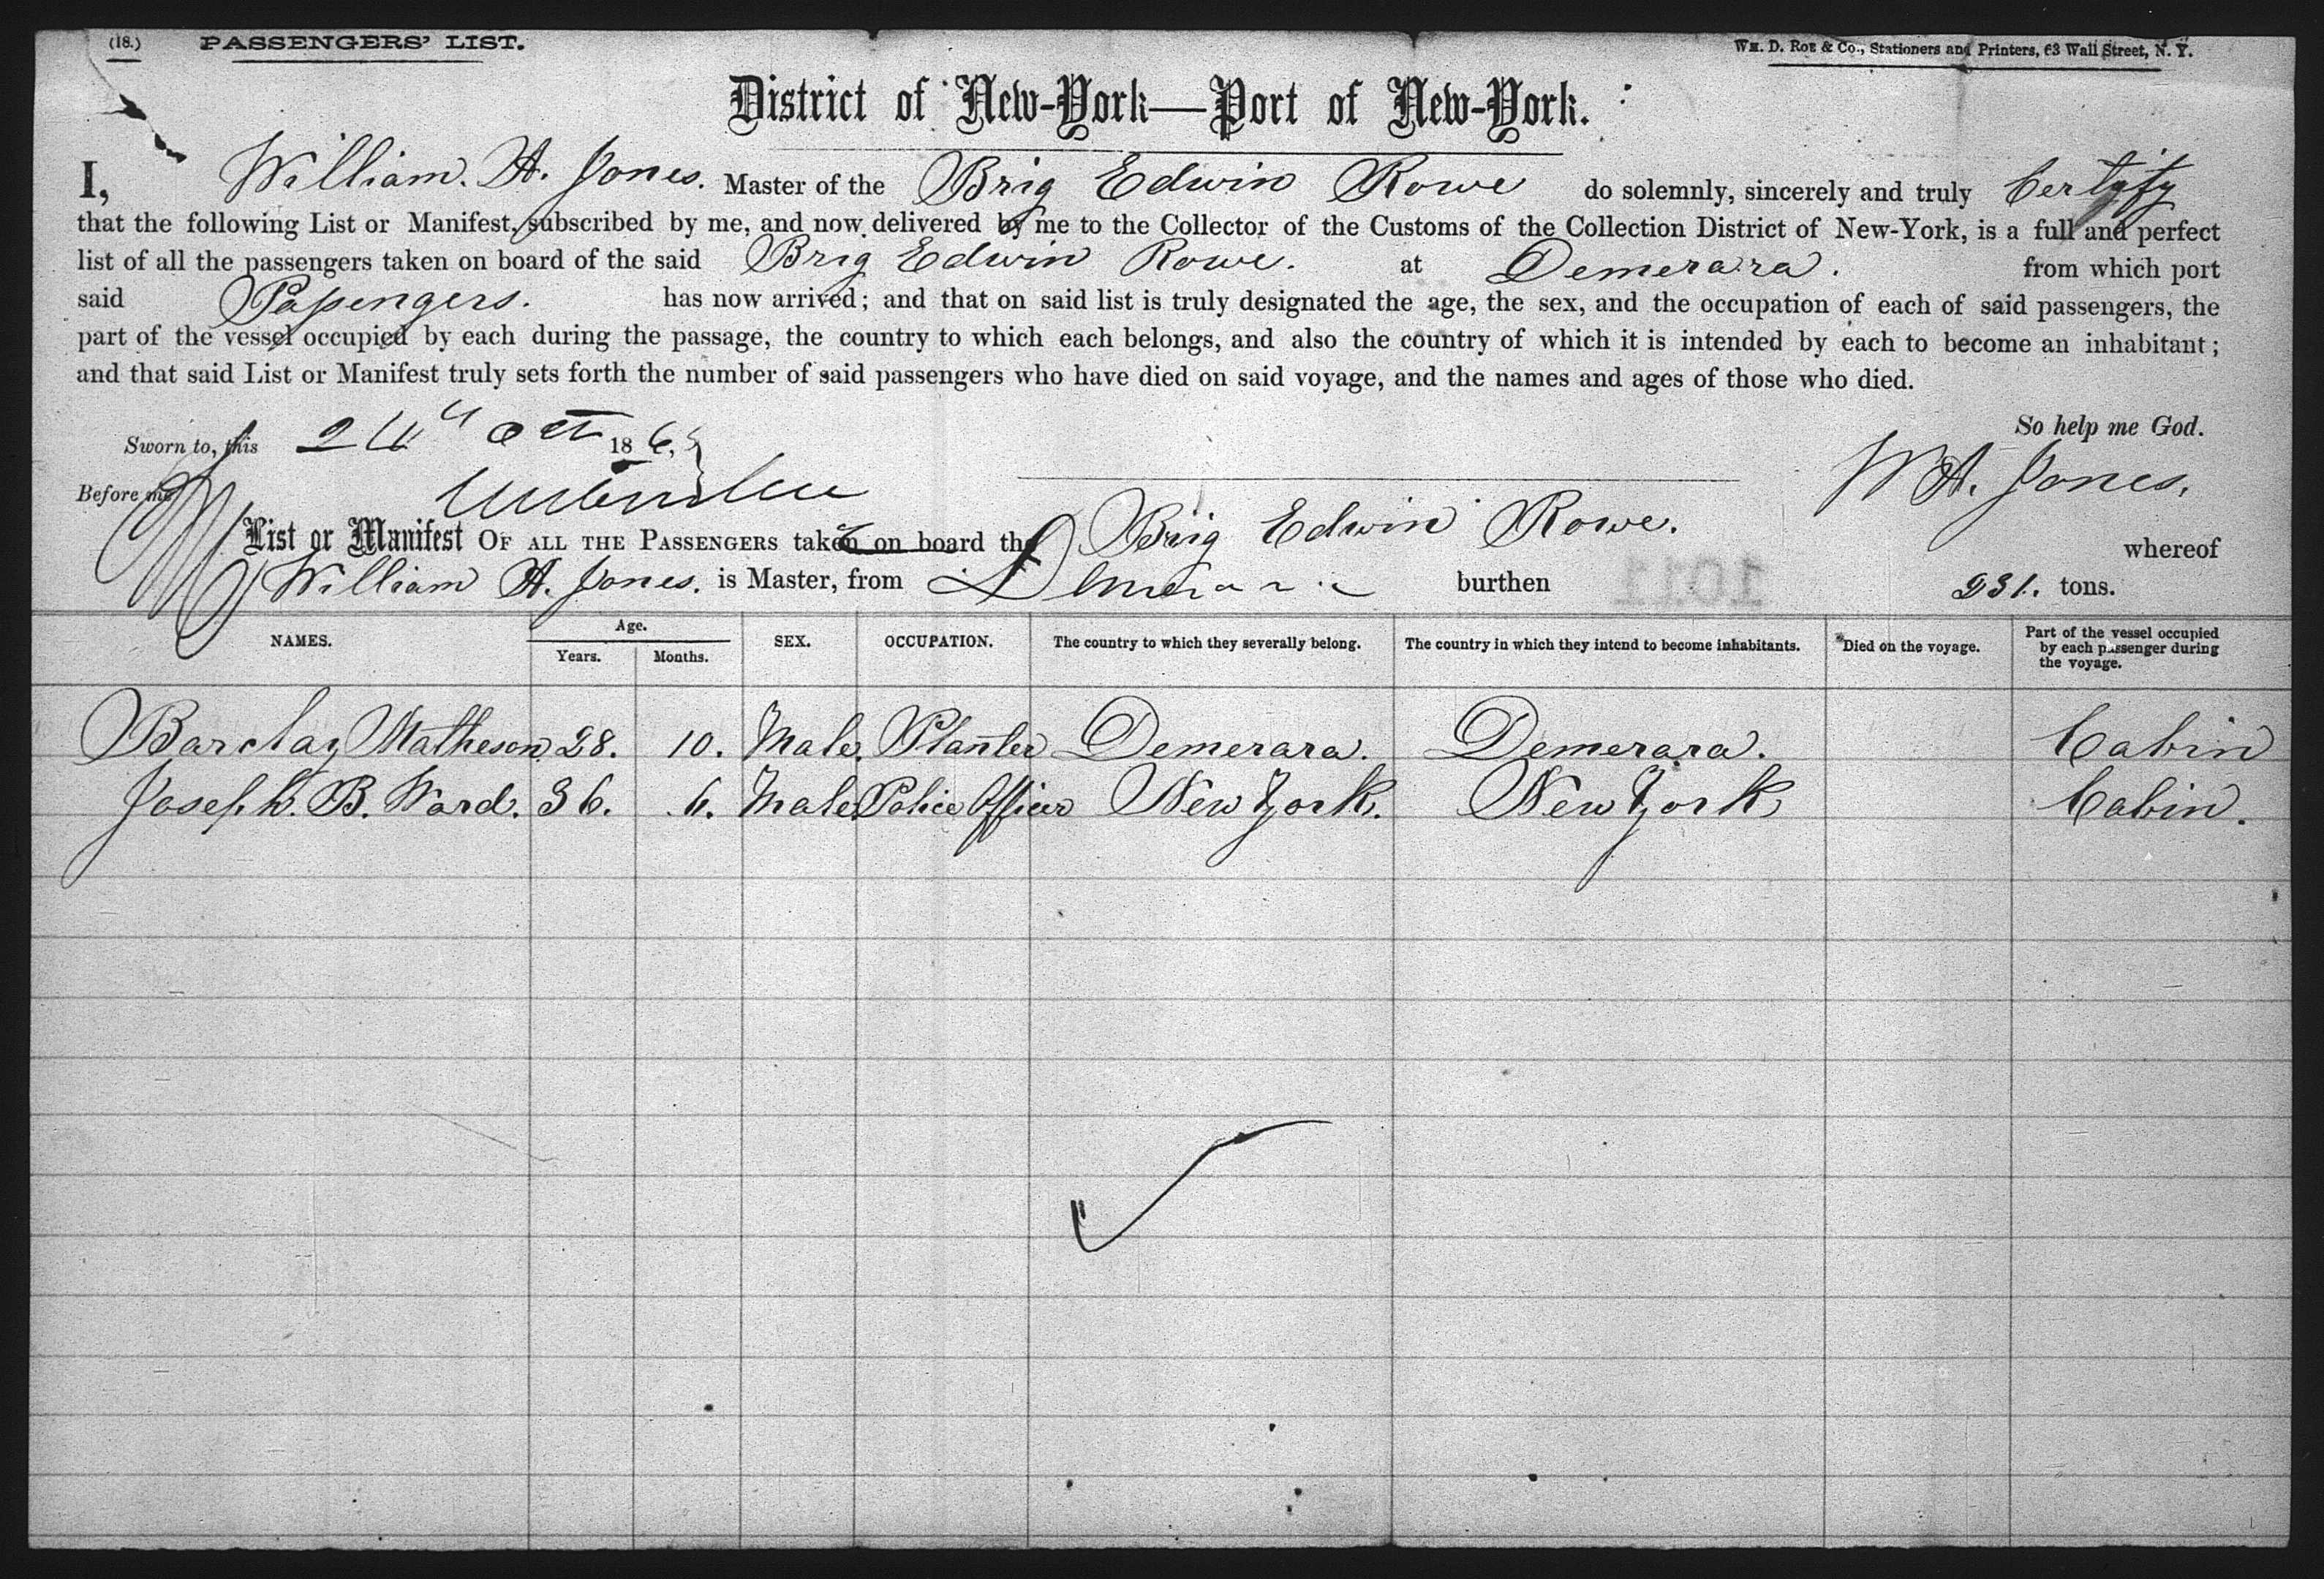 (18.) PASSENGERS' LIST. Wm. D. Roe & Co., Stationers and Printers, 63 Wall Street, N. Y.
District of New-York—Port of New-York.
I, William. A. Jones. Master of the Brig Edwin Rowe do solemnly, sincerely and truly Certyfy
that the following List or Manifest, subscribed by me, and now delivered by me to the Collector of the Customs of the Collection District of New-York, is a full and perfect
list of all the passengers taken on board of the said Brig Edwin Rowe. at Demerara. from which port
said Passengers. has now arrived; and that on said list is truly designated the age, the sex, and the occupation of each of said passengers, the
part of the vessel occupied by each during the passage, the country to which each belongs, and also the country of which it is intended by each to become an inhabitant;
and that said List or Manifest truly sets forth the number of said passengers who have died on said voyage, and the names and ages of those who died.
So help me God.
Sworn to, this Oct 186
W A. Jones.
Before me
List or Manifest OF ALL THE PASSENGERS taken on board the Brig Edwin Rowe. whereof
William A. Jones. is Master, from Demerara burthen 231. tons.
1011
NAMES. Age. Years. Months. SEX. OCCUPATION. The country to which they severally belong. The country in which they intend to become inhabitants. Died on the voyage. Part of the vessel occupied by each passenger during the voyage.
Barclay Matheson 28. 10. Male. Planter Demerara. Demerara. Cabin
Joseph. B. Ward. 36. 6. Male Police Officer New York. New York Cabin.